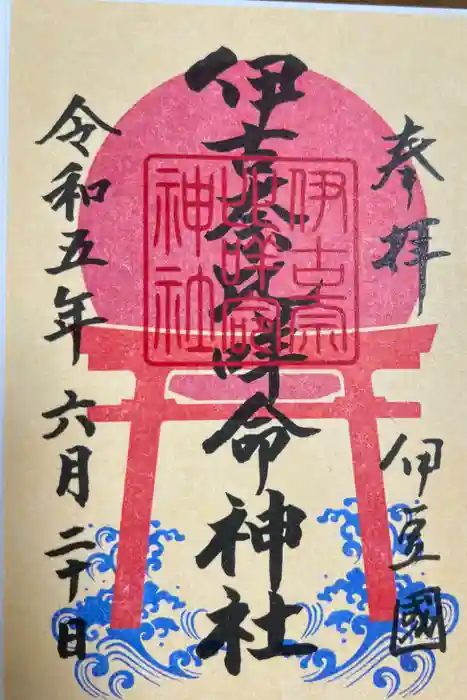 奉拝
伊豆國
伊古奈比咩命神社
伊古奈
神社
令和五年
六月二十日